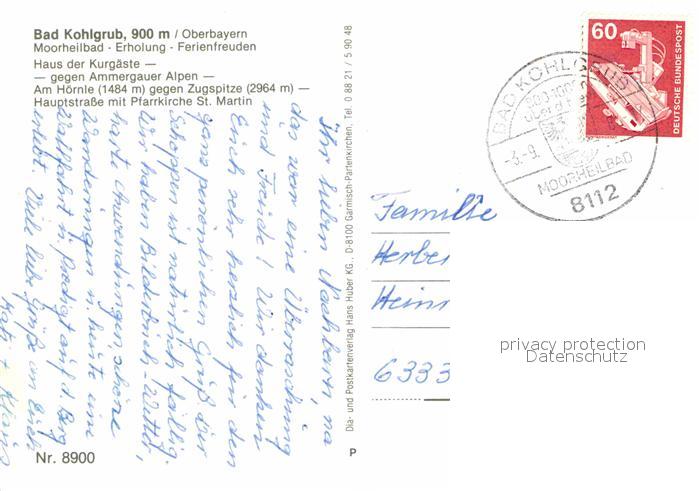 Bad Kohlgrub, 900 m / Oberbayern
Moorheilbad - Erholung - Ferienfreuden
Haus der Kurgäste —
— gegen Ammergauer Alpen —
Am Hörnle (1484 m) gegen Zugspitze (2964 m) —
Hauptstraße mit Pfarrkirche St. Martin
Ihr lieben Nachbarn, na
das war eine Überraschung
und Freude! Wir danken
Euch sehr herzlich für den
ganz persönlichen Gruß. Der
Schoppen ist natürlich fällig.
Wir haben Bilderbuch-Wetter,
harte Anwendungen, schöne
Wanderungen u. heute eine
Wallfahrt u. Predigt auf d. Berg
erlebt. Viele liebe Grüße an Euch
Nr. 8900
Dia- und Postkartenverlag Hans Huber KG., D-8100 Garmisch-Partenkirchen, Tel. 0 88 21 / 5 90 48
P
60
DEUTSCHE BUNDESPOST
BAD KOHLGRUB
-3.-9.
MOORHEILBAD
8112
Familie
Herbe
Hein
6333
privacy protection
Datenschutz